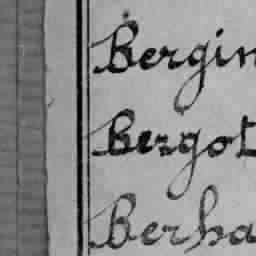 Bergin
Bergot
Berha